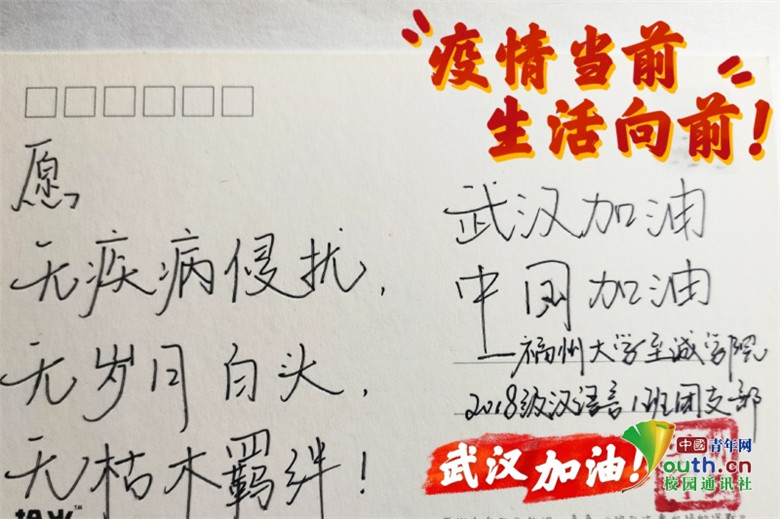 疫情当前
生活向前！
愿
无疾病侵扰，
无岁月白头，
无枯木羁绊！
武汉加油
中国加油
——福州大学至诚学院
2018级汉语言1班团支部
武汉加油！
中國青年网
youth.cn
校园通讯社